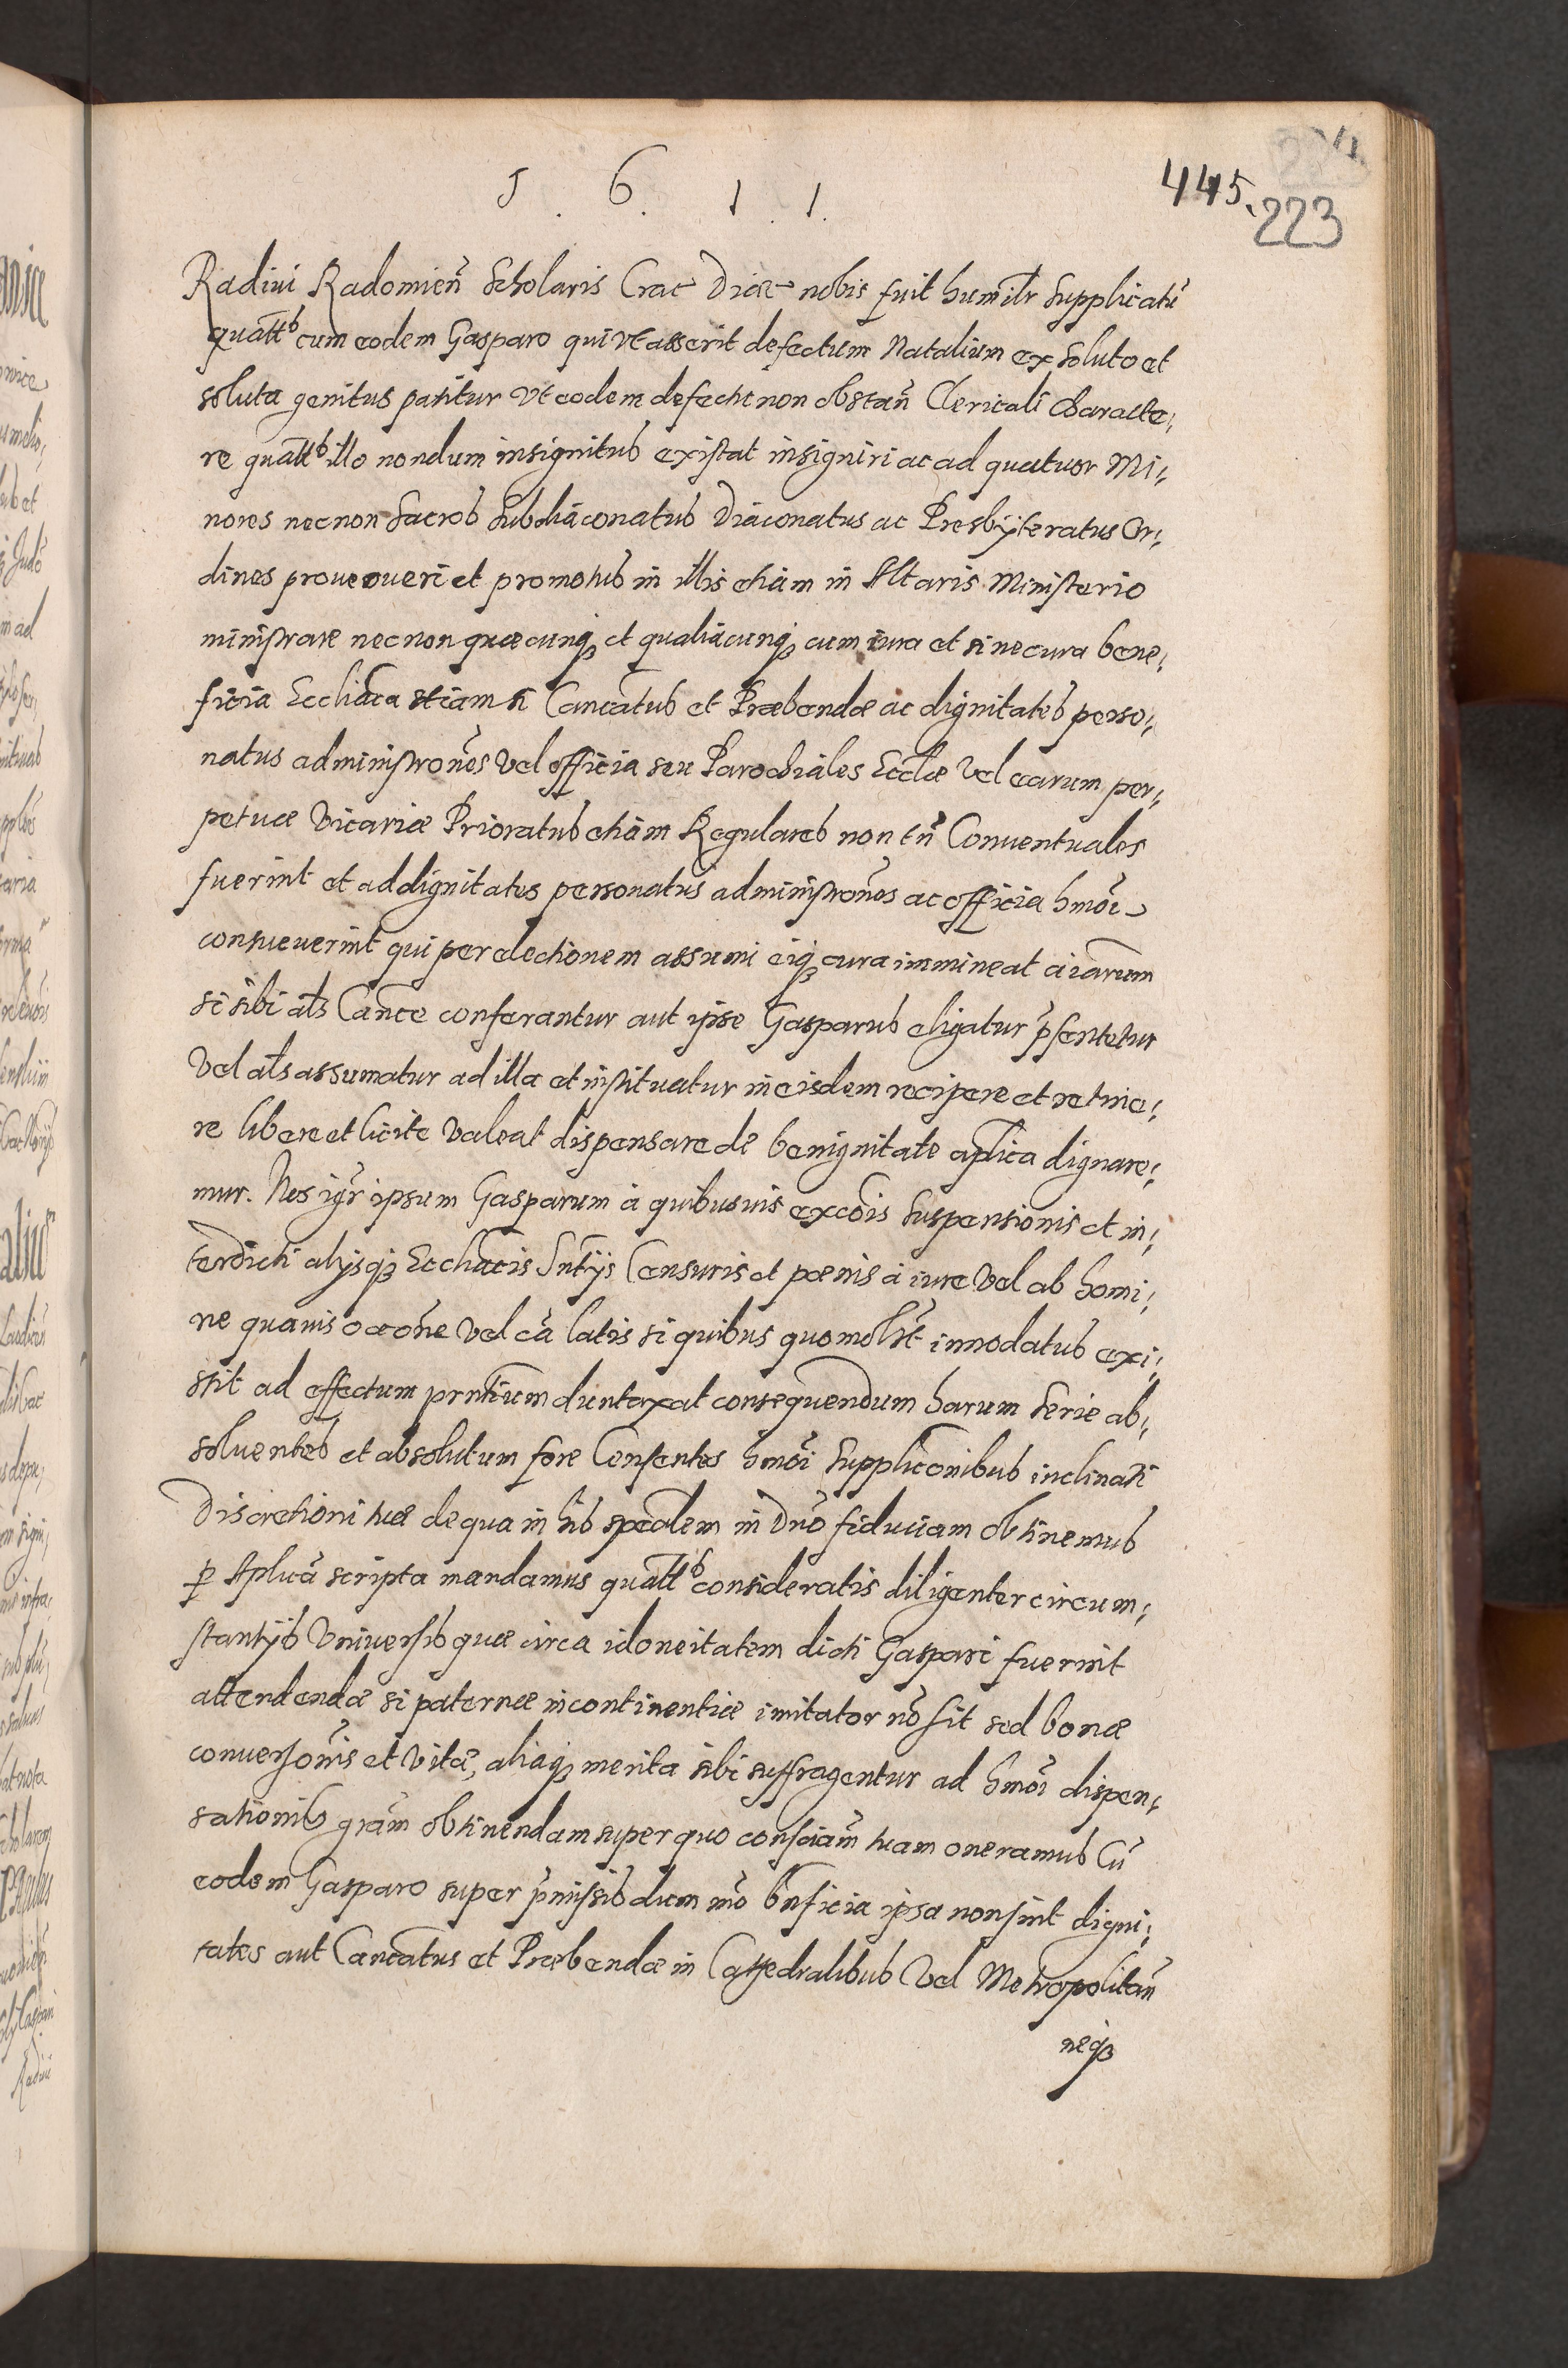 1 . 6 . 1 . 1 .
445. 223
Radiui Radomien̄ Scholaris Crac̄ Diæc̄ nobis fuit humilr̄ supplicatū
quatt̄s cum eodem Gasparo qui vt asserit defectum Natalium ex soluto et
soluta genitus patitur vt eodem defectu non obstan̄ Clericali Characte¡
re quatt̄s illo nondum insignitus existat insigniri ac ad quatuor Mi¡
nores necnon Sacros Subdiaconatus Diaconatus ac Presbÿteratus Or¡
dines prououeri et promotus in illis etiam in Altaris Ministerio
ministrare necnon quæcunq₃ et qualiacunq₃ cum cura et sine cura bene¡
ficia Ecclīaca etiam si Canc̄atus et Præbendæ ac dignitates perso¡
natus administrōnes vel officia seu Parochiales Eccl̄æ vel earum per¡
petuæ Vicariæ Prioratus etiam Regulares non tn̄ Conuentuales
fuerint et ad dignitates personatus administrōnes ac officia hmōi
consueuerint qui per electionem assumi eiq₃ cura immineat aīarum
si sibi al̄s Can̄ce conferantur aut ipse Gasparus eligatur p̄sentetur
vel al̄s assumatur ad illa et instituatur in eisdem recipere et retine¡
re libere et licite valeat dispensare de benignitate ap̄lica dignare¡
mur. Nos igr̄ ipsum Gasparum à quibusuis excōis suspensionis et in¡
terdicti alijsq₃ Ecclīacis Sn̄tijs Censuris et pœnis à iure vel ab homi¡
ne quauis occōne vel cā latis si quibus quomōlt̄ innodatus exi¡
stit ad effectum prn̄tium duntaxat consequendum harum serie ab¡
soluentes et absolutum fore Censentes hmōi supplicōnibus inclinati
Discretioni tuæ de qua in his spec̄alem in Dn̄o fiduciam obtinemus
p̱ Aplicā scripta mandamus quatt̄s consideratis diligenter circum¡
stantijs vniuersis quæ circa idoneitatem dicti Gaspari fuerint
attendendæ si paternæ incontinentiæ imitator nō sit sed bonæ
conuersōnis et vitæ, aliaq₃ merita sibi suffragentur ad hmōi dispen¡
sationis grām obtinendam super quo consciām tuam oneramus Cū
eodem Gasparo super p̄missis dum mō bn̄ficia ipsa non sint digni¡
tates aut Canc̄atus et Præbendæ in Cathedralibus vel Metropolitan̄
neq₃